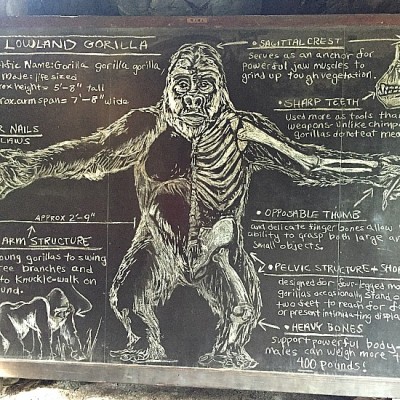 LOWLAND GORILLA
Name: Gorilla gorilla gorilla
Model: life sized
height= 5'-8" tall
arm span= 7'-8" wide
NAILS
CLAWS
APPROX 2'-9"
ARM STRUCTURE
young gorillas to swing
branches and
to knuckle-walk on
• SAGITTAL CREST
Serves as an anchor for
powerful jaw muscles to
grind up tough vegetation.
• SHARP TEETH
Used more as tools than
weapons- Unlike
gorillas do not eat
• OPPOSABLE THUMB
and delicate finger bones allow
ability to grasp both large
small objects.
• PELVIC STRUCTURE +
designed for four-legged
gorillas occasionally stand
two feet to reach for
or present intimidating
• HEAVY BONES
support powerful body-
males can weigh more
400 pounds!